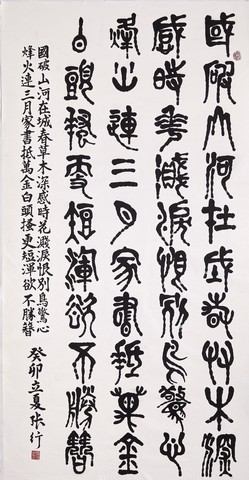 國破山河在城春草木深
感時花濺淚恨別鳥驚心
烽火連三月家書抵萬金
白頭搔更短渾欲不勝簪
國破山河在城春草木深感時花濺淚恨別鳥驚心
烽火連三月家書抵萬金白頭搔更短渾欲不勝簪
癸卯立夏张行